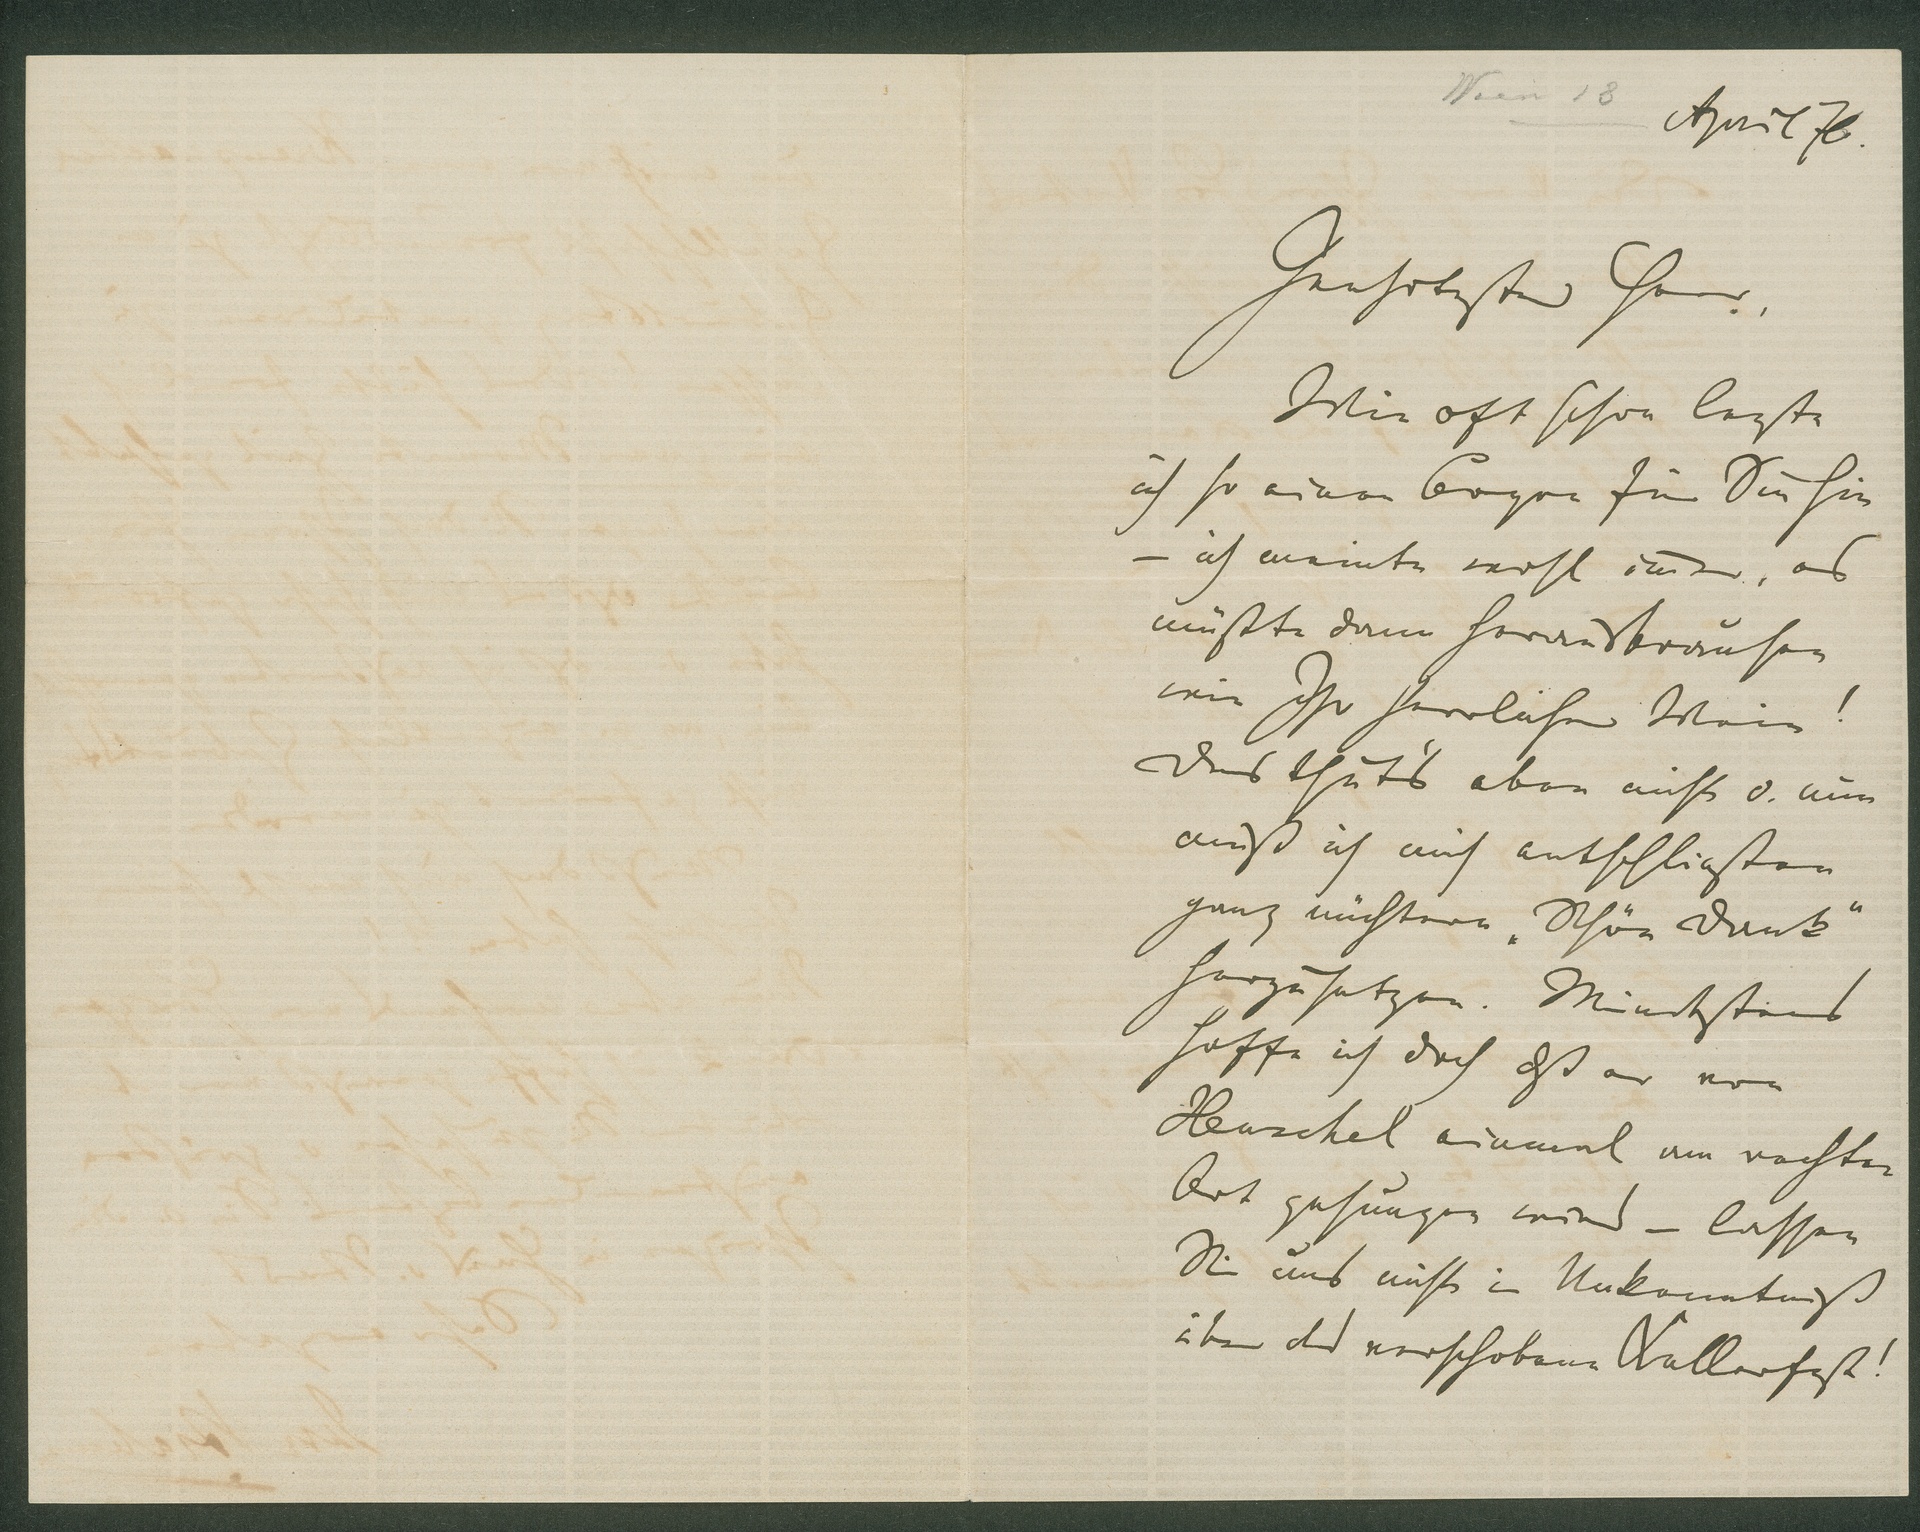 Wien 18
April 76.
Geehrtester Herr,
Wie oft schon legte
ich so einen Bogen für Sie hin
– ich meinte wohl im̅er, es
müßte dann herausbrausen
wie Ihr herrlicher Wein!
Das thut's aber nicht u. nun
muß ich mich entschließen
ganz nüchtern „Schön Dank“
herzusetzen. Mindestens
hoffe ich doch dß er von
Henschel einmal am rechten
Ort gesungen wird – lassen
Sie uns nicht in Unkenntniß
über das verschobene